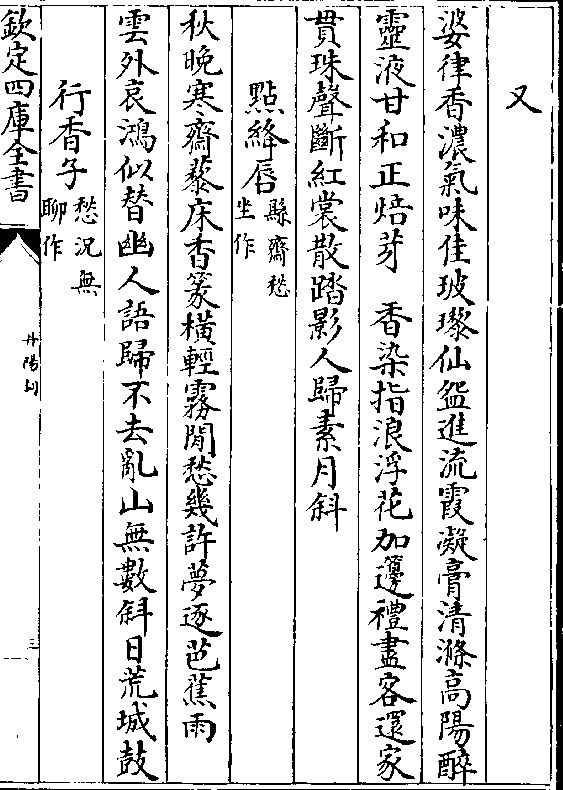 又
婆律香濃氣味佳玻瓈仙盌進流霞凝膏清滌高陽醉
靈液甘和正焙芽　香染指浪浮花加籩禮盡客還家
貫珠聲斷紅裳散踏影人歸素月斜
點絳唇縣齋愁坐作
秋晚寒齋藜床香篆橫輕霧閒愁幾許夢逐芭蕉雨
雲外哀鴻似替幽人語歸不去亂山無數斜日荒城鼓
行香子愁況無聊作
欽定四庫全書
丹陽詞
三